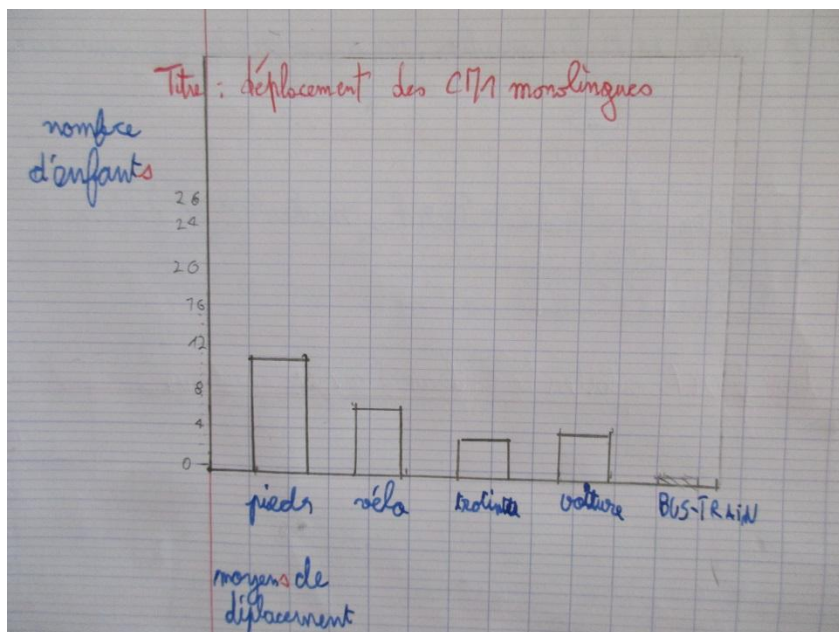 Titre : déplacement des CM1 monolingues
nombre
d'enfants
26
24
20
16
12
8
4
0
pieds vélo voiture BUS-TRAIN
moyens de
déplacement